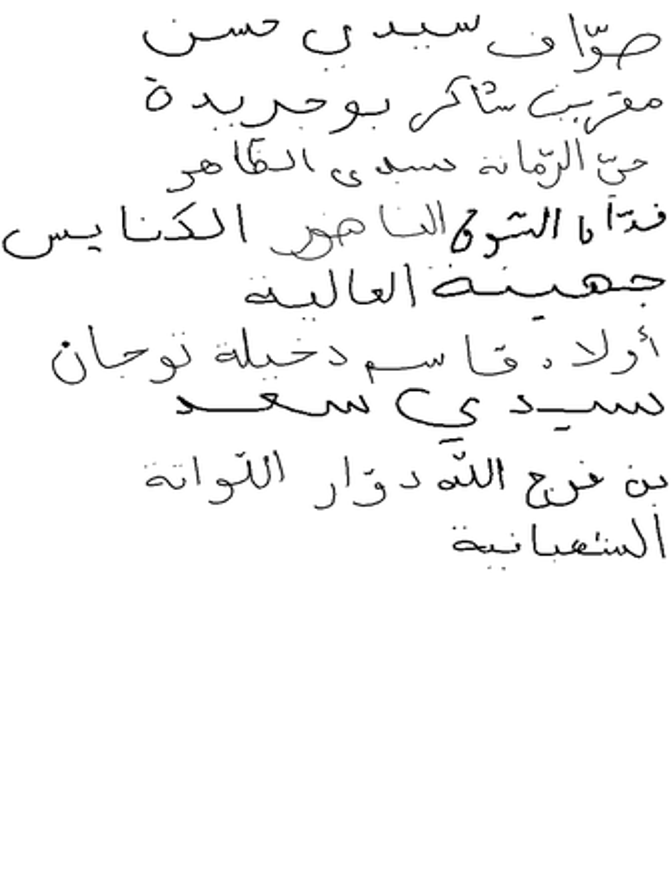 صوّاف سيدي حسن
مقرين شاكر بوجريدة
حيّ الرّمانة سيدي الظاهر
الناظور الكنايس
جهينة العالية
أولاد قاسم دخيلة توجان
سيدي سعد
بن فرج الله دوّار اللّواتة
الشعبانية